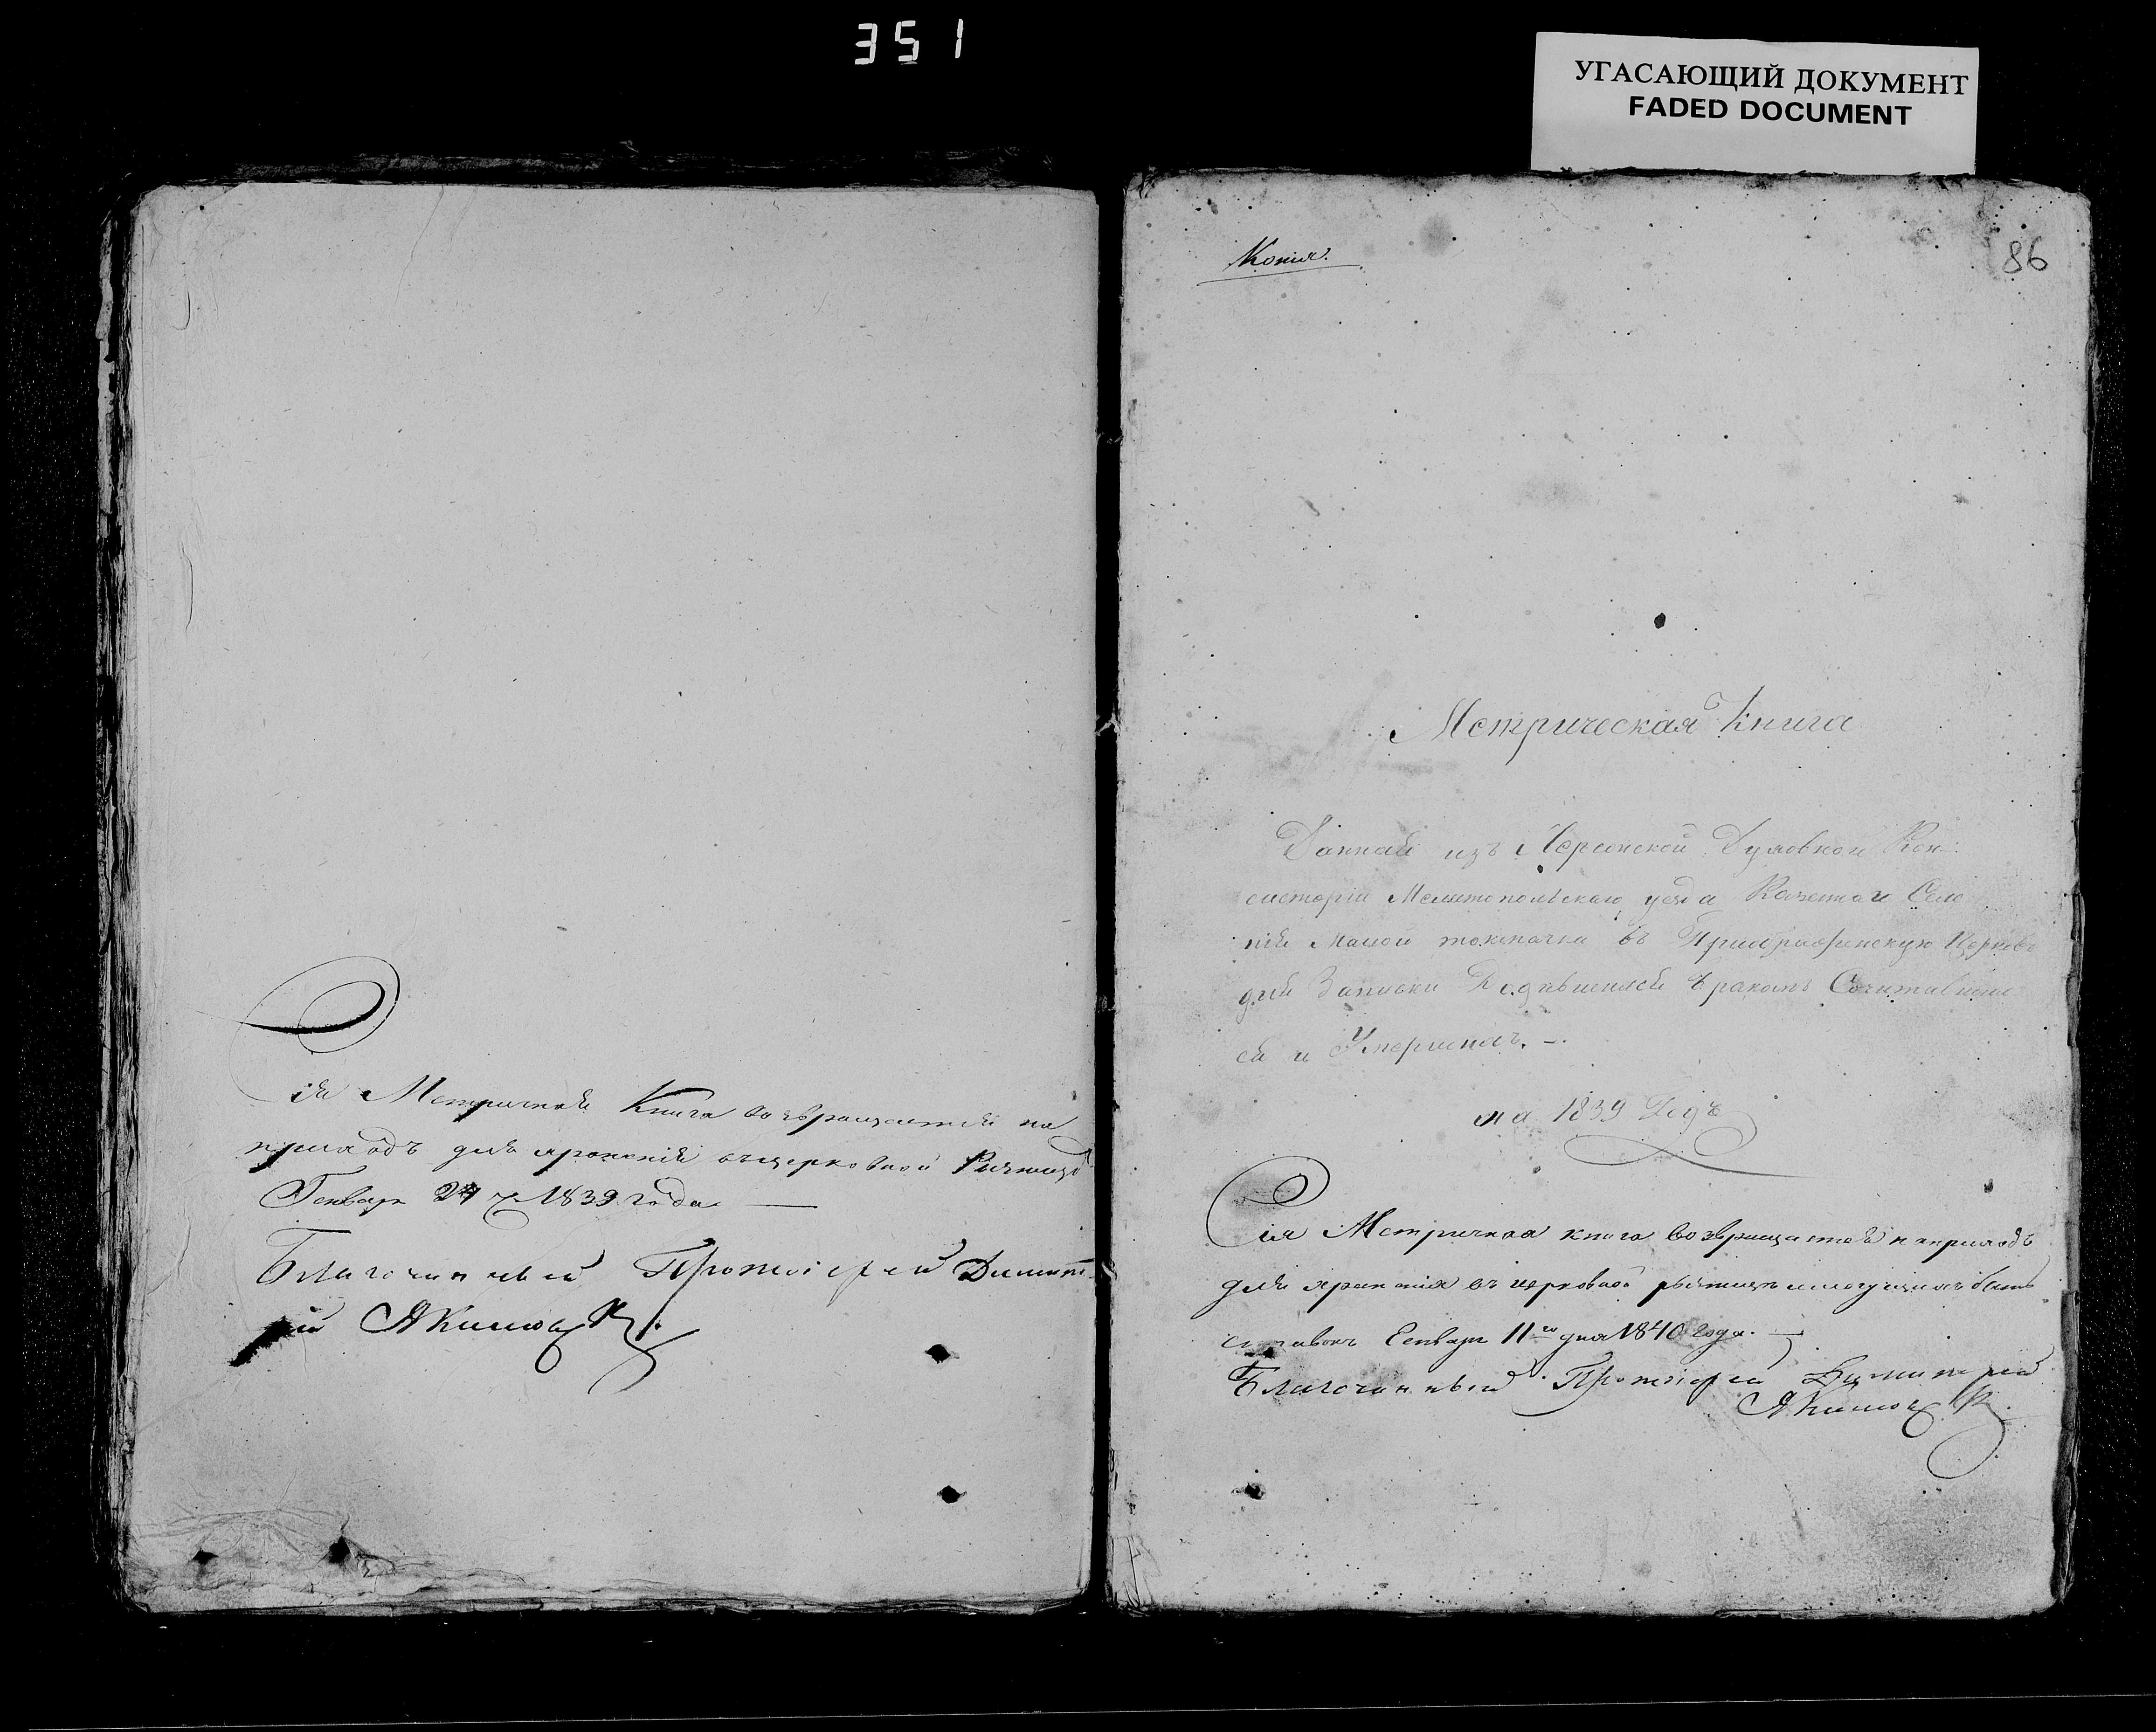 351
УГАСАЮЩИЙ ДОКУМЕНТ
FADED DOCUMENT
Сія Метричная Книга возвращается на
приходъ для храненія въ церковной Ризницѣ
Генваря 24 1839 года
Благочинный Протоіерей Димит-
рій Якимов
Копія.
86
Метрическая Книга
Данная изъ Херсонской Духовной Кон-
систоріи Мелитопольскаго уезда Казеннаго Селе
нія Малой токмачки въ церковь
для Записки Родившихся Бракомъ Сочитавших
ся и Умершихъ. –
на 1839 Годъ
Сія Метричная книга возвращается на приходъ
для храненія въ церковной могущихъ быть
справокъ Генваря 11го дня 1840 года. —
Благочинный Протоіерей Димитрій
Якимов